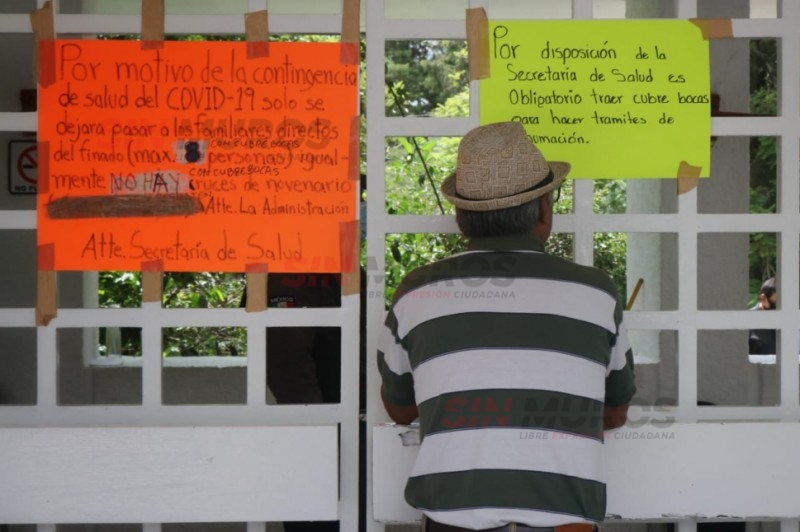 Por motivo de la contingencia
de salud del COVID-19 solo se
dejara pasar a los familiares directos
CON CUBRE BOCAS
del finado (max. 8 personas) igual-
CON CUBREBOCAS
mente NO HAY cruces de novenario
Atte. La Administración
Atte. Secretaría de Salud
Por disposición de la
Secretaría de Salud es
Obligatorio traer cubre bocas
para hacer tramites de
umación.
SIN MUROS
LIBRE EXPRESIÓN CIUDADANA
SIN MUROS
LIBRE EXPRESIÓN CIUDADANA
SIN MUROS